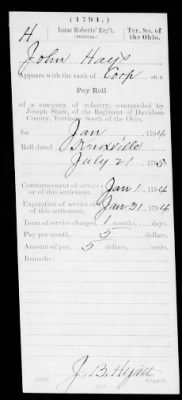 (1794.)
H Isaac Roberts' Reg't, Ter. So. of the Ohio.
(Militia.)
John Hays
Appears with the rank of Corp. on a
Pay Roll
of a company of infantry, commanded by
Joseph Shaw, of the Regiment of Davidson
County, Territory South of the Ohio,
for Jan 1794
Roll dated Knoxville
July 21 1795
Commencement of service or of this settlement, Jan 1, 1794
Expiration of service or of this settlement, Jan 31, 1794
Term of service charged, 1 months, days.
Pay per month, 5 dollars, cents.
Amount of pay, 5 dollars, cents.
Remarks:
J. B. Hyatt
Copyist.